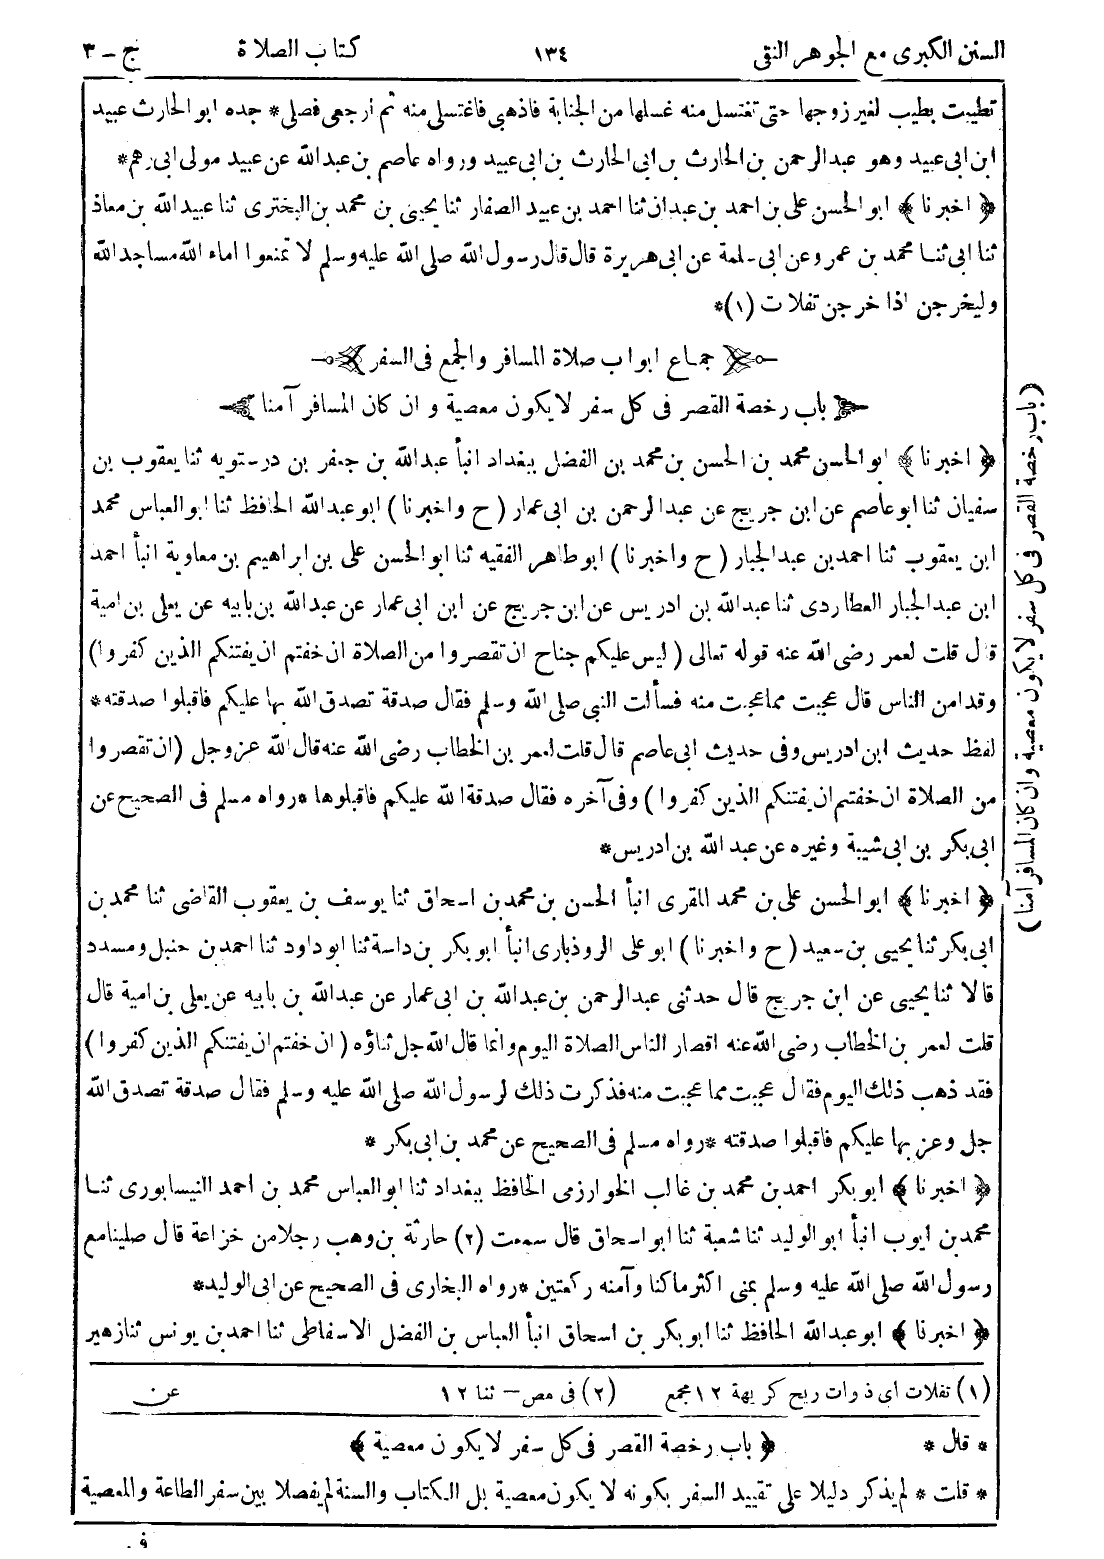 السنن الكبرى مع الجوهر النقى ١٣٤ كتاب الصلاة ج - ٣
تطيبت بطيب لغير زوجها حتى تغتسل منه غسلها من الجنابة فاذهبى فاغتسلى منه ثم ارجعى فصلى * جده ابو الحارث عبيد
ابن ابى عبيد وهو عبد الرحمن بن الحارث بن ابى الحارث بن ابى عبيد ورواه عاصم بن عبد الله عن عبيد مولى ابى رهم *
﴿ اخبرنا ﴾ ابو الحسن على بن احمد بن عبدان ثنا احمد بن عبيد الصفار ثنا يحيى بن محمد بن البخترى ثنا عبيد الله بن معاذ
ثنا ابى ثنا محمد بن عمرو عن ابى سلمة عن ابى هريرة قال قال رسول الله صلى الله عليه وسلم لا تمنعوا اماء الله مساجد الله
وليخرجن اذا خرجن تفلات (١) *
جماع ابواب صلاة المسافر والجمع فى السفر
باب رخصة القصر فى كل سفر لا يكون معصية وان كان المسافر آمنا
﴿ اخبرنا ﴾ ابو الحسن محمد بن الحسن بن محمد بن الفضل ببغداد انبأ عبد الله بن جعفر بن درستويه ثنا يعقوب بن
سفيان ثنا ابو عاصم عن ابن جريج عن عبد الرحمن بن ابى عمار ( ح واخبرنا ) ابو عبد الله الحافظ ثنا ابو العباس محمد
ابن يعقوب ثنا احمد بن عبد الجبار ( ح واخبرنا ) ابو طاهر الفقيه ثنا ابو الحسن على بن ابراهيم بن معاوية انبأ احمد
ابن عبد الجبار العطاردى ثنا عبد الله بن ادريس عن ابن جريج عن ابن ابى عمار عن عبد الله بن بابيه عن يعلى بن امية
قال قلت لعمر رضى الله عنه قوله تعالى ( ليس عليكم جناح ان تقصروا من الصلاة ان خفتم ان يفتنكم الذين كفروا )
وقد امن الناس قال عجبت مما عجبت منه فسألت النبى صلى الله وسلم فقال صدقة تصدق الله بها عليكم فاقبلوا صدقته *
لفظ حديث ابن ادريس وفى حديث ابى عاصم قال قلت لعمر بن الخطاب رضى الله عنه قال الله عز وجل ( ان تقصروا
من الصلاة ان خفتم ان يفتنكم الذين كفروا ) وفى آخره فقال صدقة الله عليكم فاقبلوها * رواه مسلم فى الصحيح عن
ابى بكر بن ابى شيبة وغيره عن عبد الله بن ادريس *
﴿ اخبرنا ﴾ ابو الحسن على بن محمد المقرى انبأ الحسن بن محمد بن اسحاق ثنا يوسف بن يعقوب القاضى ثنا محمد بن
ابى بكر ثنا يحيى بن سعيد ( ح واخبرنا ) ابو على الروذبارى انبأ ابو بكر بن داسة ثنا ابو داود ثنا احمد بن حنبل ومسدد
قالا ثنا يحيى عن ابن جريج قال حدثنى عبد الرحمن بن عبد الله بن ابى عمار عن عبد الله بن بابيه عن يعلى بن امية قال
قلت لعمر بن الخطاب رضى الله عنه اقصار الناس الصلاة اليوم وانما قال الله جل ثناؤه ( ان خفتم ان يفتنكم الذين كفروا )
فقد ذهب ذلك اليوم فقال عجبت مما عجبت منه فذكرت ذلك لرسول الله صلى الله عليه وسلم فقال صدقة تصدق الله
جل وعز بها عليكم فاقبلوا صدقته * رواه مسلم فى الصحيح عن محمد بن ابى بكر *
﴿ اخبرنا ﴾ ابو بكر احمد بن محمد بن غالب الخوارزمى الحافظ ببغداد ثنا ابو العباس محمد بن احمد النيسابورى ثنا
محمد بن ايوب انبأ ابو الوليد ثنا شعبة ثنا ابو اسحاق قال سمعت (٢) حارثة بن وهب رجلا من خزاعة قال صلينا مع
رسول الله صلى الله عليه وسلم بمنى اكثر ما كنا وآمنه ركعتين * رواه البخارى فى الصحيح عن ابى الوليد *
﴿ اخبرنا ﴾ ابو عبد الله الحافظ ثنا ابو بكر بن اسحاق انبأ العباس بن الفضل الاسفاطى ثنا احمد بن يونس ثنا زهير
(١) تفلات اى ذوات ريح كريهة ١٢ مجمع (٢) فى مص - ثنا ١٢ عن
* قال * ﴿ باب رخصة القصر فى كل سفر لا يكون معصية ﴾
* قلت * لم يذكر دليلا على تقييد السفر بكونه لا يكون معصية بل الكتاب والسنة لم يفصلا بين سفر الطاعة والمعصية
فى
( باب رخصة القصر فى كل سفر لا يكون معصية وان كان المسافر آمنا )